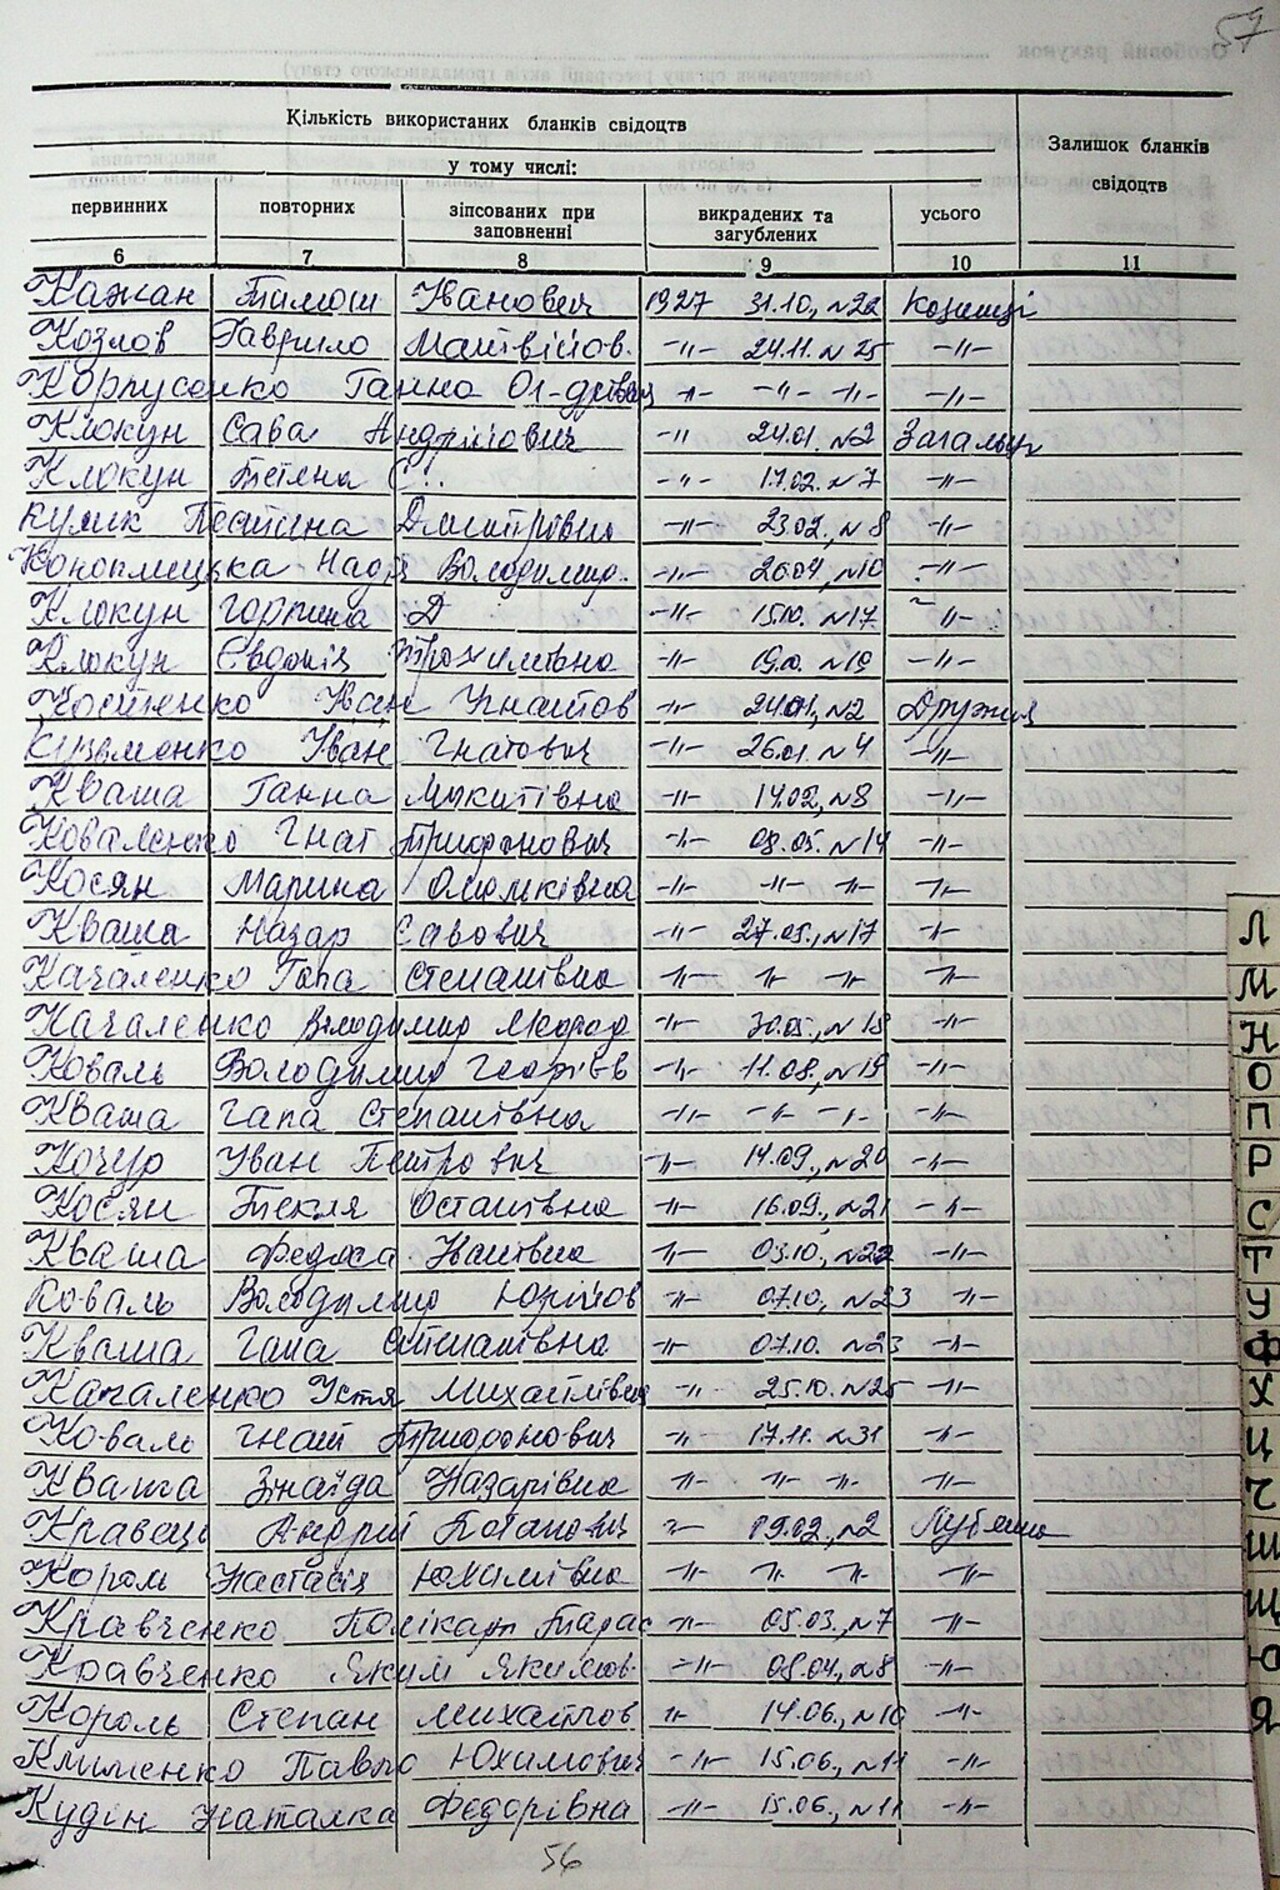 57
Кількість використаних бланків свідоцтв
Залишок бланків свідоцтв
у тому числі:
первинних повторних зіпсованих при заповненні викрадених та загублених усього
6 7 8 9 10 11
Кажан Тимош Іванович 1927 31.10., №22 Козинці
Козлов Гаврило Матвійов. -"- 24.11. №25 -"-
Корпусенко Ганна -"- -"- -"- -"-
Клокун Сава Андрійович -"- 24.01. №2 Загальці
Клокун Тетяна С. -"- 17.02. №7 -"-
Кулик Тетяна Дмитрівна -"- 23.02., №8 -"-
Надія Володимир. -"- 26.04, №10 -"-
Клокун Горпина Д -"- 15.10. №17 -"-
Клокун Євдокія Трохимівна -"- 19.10. №19 -"-
Костенко Іван Ігнатов -"- 24.01., №2 Дружня
Кузьменко Іван Гнатович -"- 26.01. №4 -"-
Кваша Ганна Микитівна -"- 14.02., №8 -"-
Коваленко Гнат Трифонович -"- 08.05. №14 -"-
Косян Марина Омельківна -"- -"- -"- -"-
Кваша Назар Савович -"- 27.05., №17 -"-
Качаленко Гапа Степанівна -"- -"- -"- -"-
Качаленко Володимир -"- 30.05., №18 -"-
Коваль Володимир Георгіїв -"- 11.08., №19 -"-
Кваша Гапа Степанівна -"- -"- -"- -"-
Кочур Іван Петрович -"- 14.09., №20 -"-
Косян Текля Остапівна -"- 16.09., №21 -"-
Кваша Федоса -"- 03.10., №22 -"-
Коваль Володимир Юрійов -"- 07.10., №23 -"-
Кваша Гапа Степанівна -"- 07.10. №23 -"-
Качаленко Устя Михайлівна -"- 25.10. №25 -"-
Коваль Гнат Трифонович -"- 17.11. №31 -"-
Кваша Зінаїда Назарівна -"- -"- -"- -"-
Кравець Андрій Потапович -"- 09.02., №2 Луб'янка
Король Настасія Юхимівна -"- -"- -"- -"-
Кравченко Полікарп Тарас -"- 05.03., №7 -"-
Кравченко Яким Якимов. -"- 08.04., №8 -"-
Король Степан Михайлов -"- 14.06., №10 -"-
Клименко Павло Юхимович -"- 15.06., №11 -"-
Кудін Наталка Федорівна -"- 15.06., №11 -"-
56
Л
М
Н
О
П
Р
С
Т
У
Ф
Х
Ц
Ч
Ш
Щ
Ю
Я